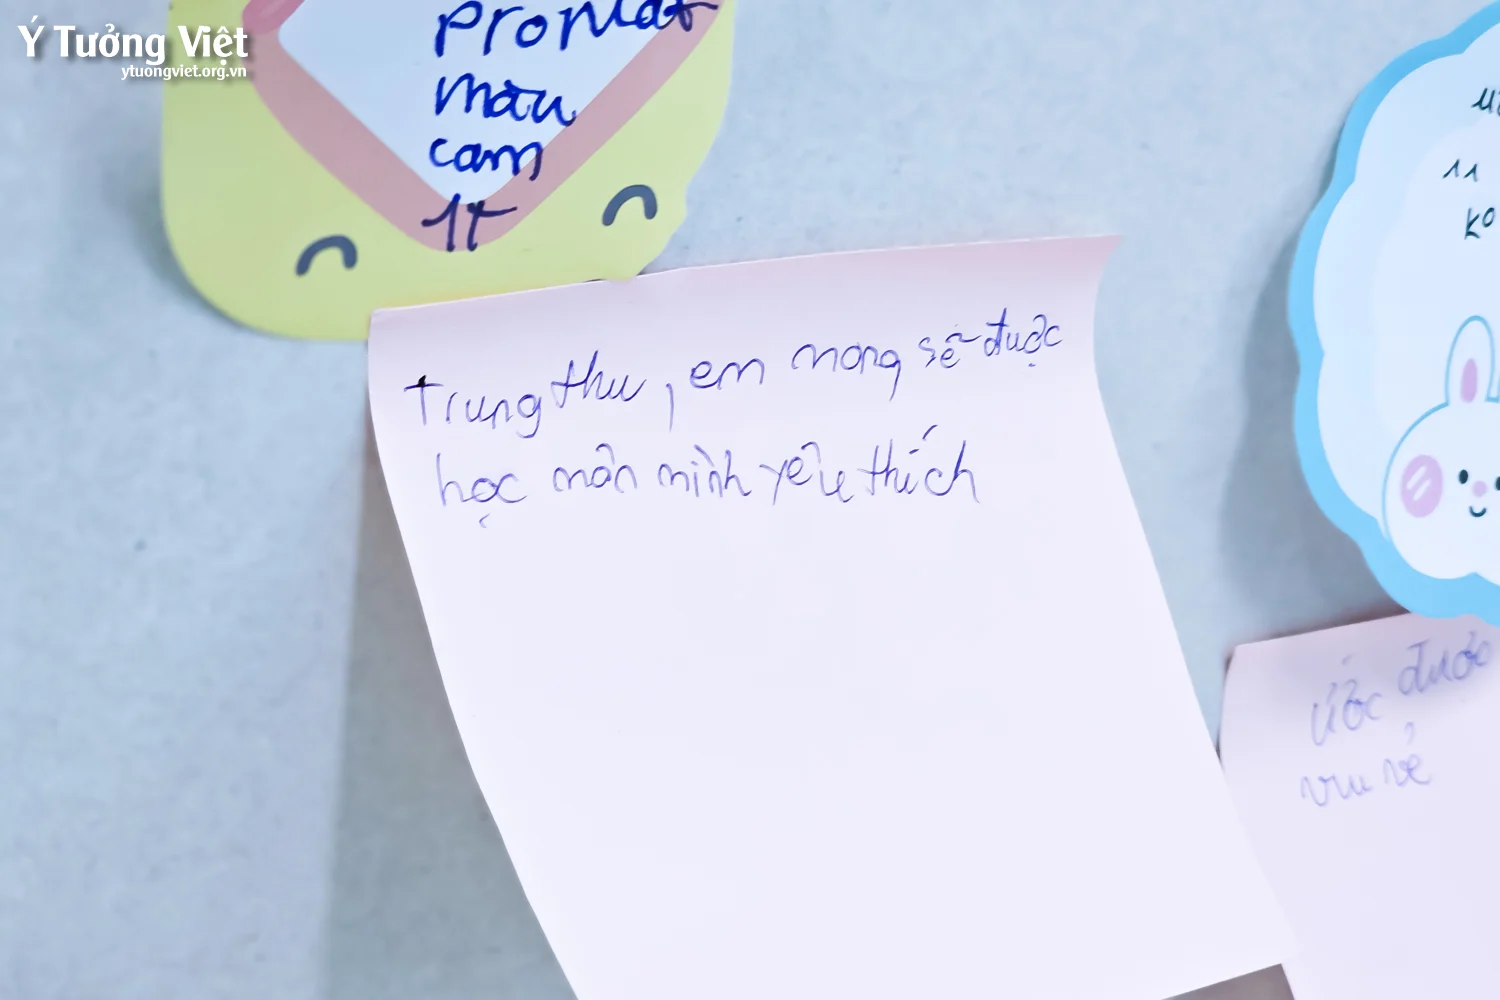 Ý Tưởng Việt
ytuongviet.org.vn
màu
cam
1t
Trung thu, em mong sẽ được
học môn mình yêu thích
11
ko
ước được
vui vẻ